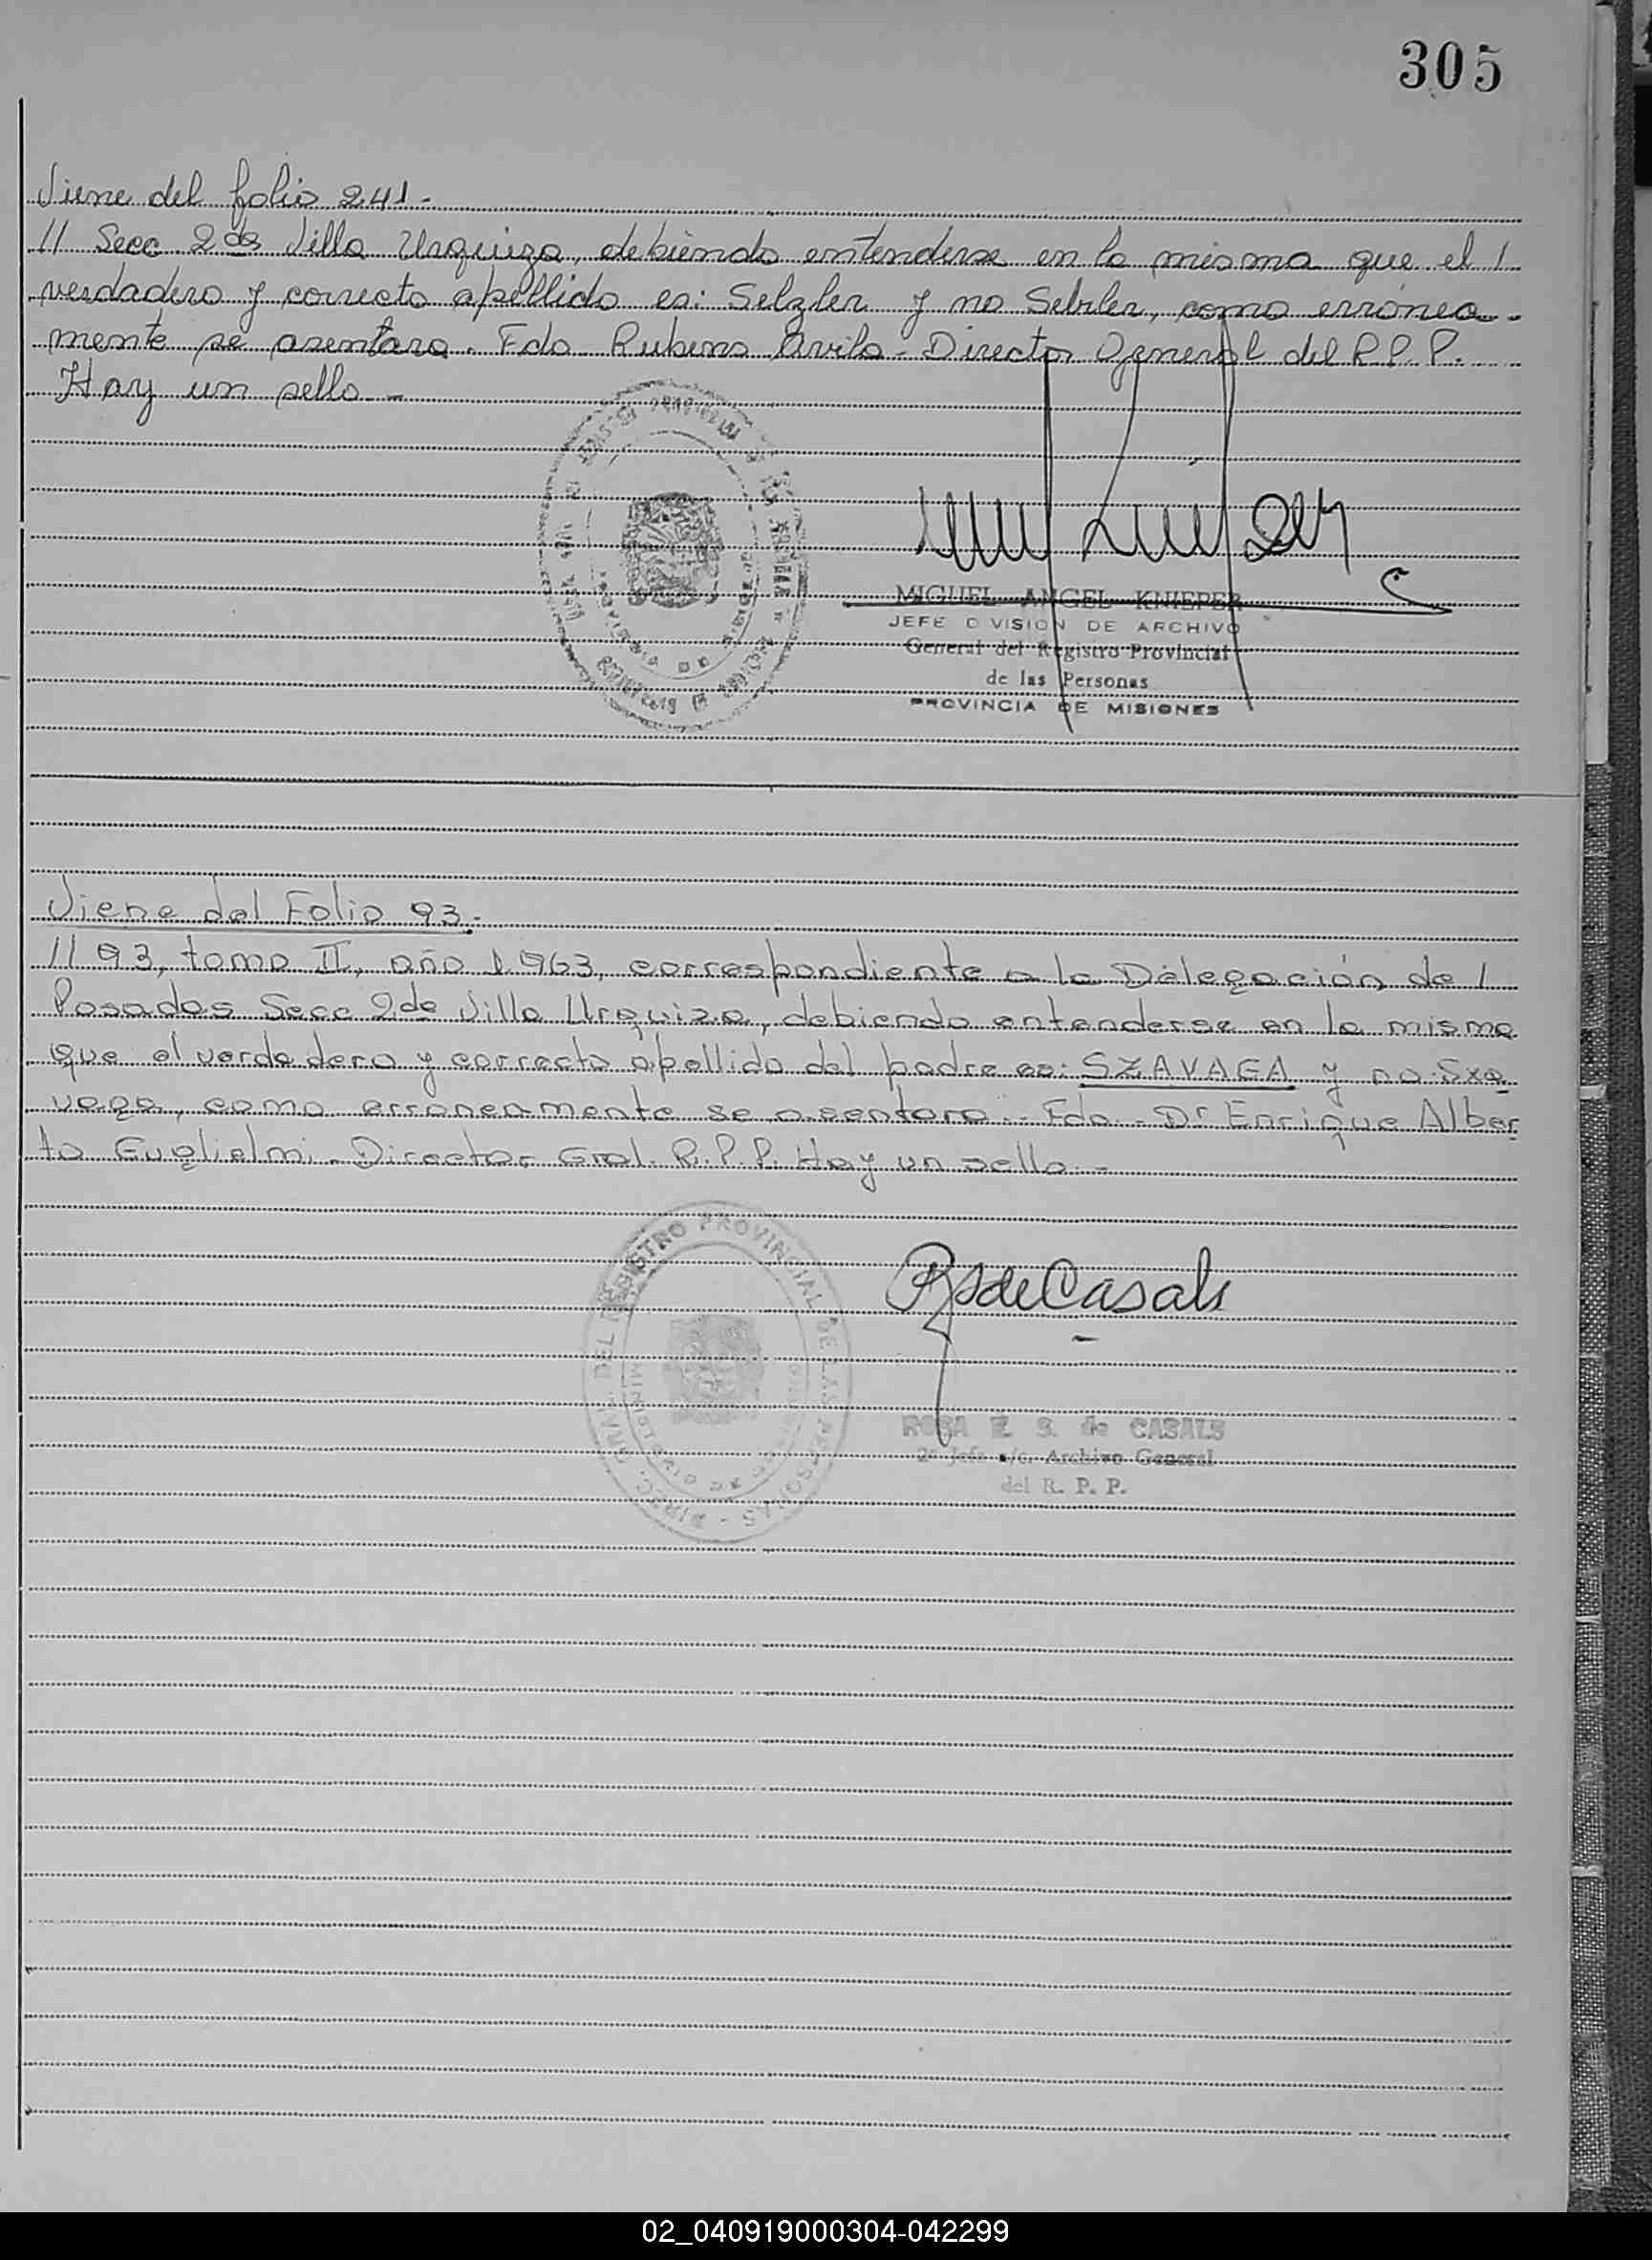 305
Viene del folio 241.-
// Secc 2da Villa Urquiza, debiendo entenderse en la misma que el /
verdadero y correcto apellido es: Selzler y no Sebrler, como errónea-
mente se asentara. Fdo Rubens Avila - Director General del R.P.P.
Hay un sello.-
MIGUEL ANGEL KNIEPER
JEFE DIVISION DE ARCHIVO
General del Registro Provincial
de las Personas
PROVINCIA DE MISIONES
Viene del Folio 93.-
// 93, tomo II, año 1.963, correspondiente a la Delegación de /
Posadas Secc 2da Villa Urquiza, debiendo entenderse en la misma
que el verdadero y correcto apellido del padre es: SZAVAGA y no Sxa
vaga, como erróneamente se asentara.- Fdo.- Dr Enrique Alber
to Guglielmi.- Director Gral. R.P.P. Hay un sello.-
DIREC. GRAL. DEL REGISTRO PROVINCIAL DE LAS PERSONAS
RS de Casals
ROSA E. S. de CASALS
2º Jefe a/c. Archivo General
del R. P. P.
02_040919000304-042299